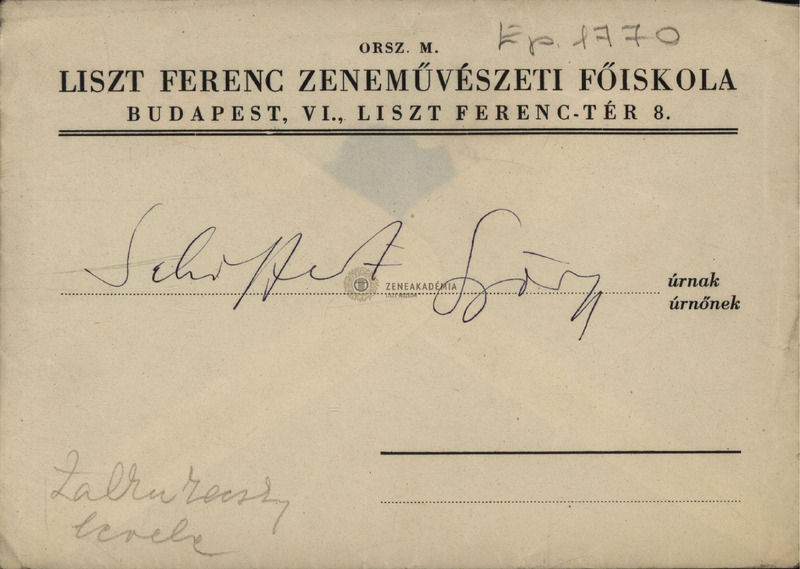 Ép. 1770
ORSZ. M.
LISZT FERENC ZENEMŰVÉSZETI FŐISKOLA
BUDAPEST, VI., LISZT FERENC-TÉR 8.
György
ZENEAKADÉMIA
LISZT MÚZEUM
úrnak
úrnőnek
levele